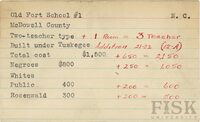 Old Fort School #1 N. C.
McDowell County
Two-teacher type + 1 Room = 3 Teacher
Built under Tuskegee Addition 21-22 (2-A)
Total cost $1,500 + 650 = 2150
Negroes $800 + 250 = 1050
Whites
Public 400 + 200 = 600
Rosenwald 300 + 200 = 500
FISK
UNIVERSITY